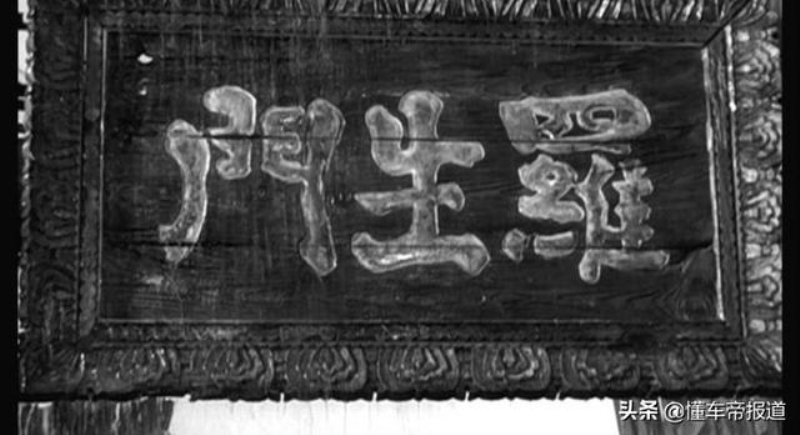 羅生門
头条 @懂车帝报道